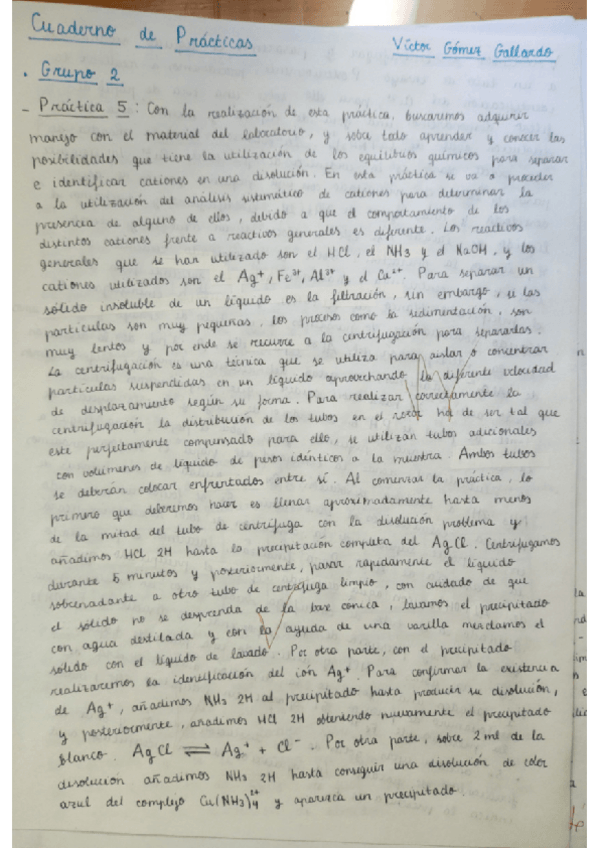 Cuaderno de Prácticas Víctor Gómez Gallardo
• Grupo 2
- Práctica 5: Con la realización de esta práctica, buscaremos adquirir
manejo con el material del laboratorio, y sobre todo aprender y conocer las
posibilidades que tiene la utilización de los equilibrios químicos para separar
e identificar cationes en una disolución. En esta práctica se va a proceder
a la utilización del análisis sistemático de cationes para determinar la
presencia de alguno de ellos, debido a que el comportamiento de los
distintos cationes frente a reactivos generales es diferente. Los reactivos
generales que se han utilizado son el HCl, el NH3 y el NaOH, y los
cationes utilizados son el Ag+, Fe3+, Al3+ y el Cu2+. Para separar un
sólido insoluble de un líquido es la filtración, sin embargo, si las
partículas son muy pequeñas, los procesos como la sedimentación, son
muy lentos y por ende se recurre a la centrifugación para separarlas.
La centrifugación es una técnica que se utiliza para aislar o concentrar
partículas suspendidas en un líquido aprovechando la diferente velocidad
de desplazamiento según su forma. Para realizar correctamente la
centrifugación la distribución de los tubos en el rotor ha de ser tal que
este perfectamente compensado para ello, se utilizan tubos adicionales
con volumenes de líquido de pesos idénticos a la muestra. Ambos tubos
se deberán colocar enfrentados entre sí. Al comenzar la práctica, lo
primero que deberemos hacer es llenar aproximadamente hasta menos
de la mitad del tubo de centrífuga con la disolución problema y
añadimos HCl 2H hasta la precipitación completa del AgCl. Centrifugamos
durante 5 minutos y posteriormente, pasar rápidamente el líquido
sobrenadante a otro tubo de centrífuga limpio, con cuidado de que
el sólido no se desprenda de la base cónica, lavamos el precipitado
con agua destilada y con la ayuda de una varilla mezclamos el
sólido con el líquido de lavado. Por otra parte, con el precipitado
realizaremos la identificación del ión Ag+. Para confirmar la existencia
de Ag+, añadimos NH3 2H al precipitado hasta producir su disolución,
y posteriormente, añadimos HCl 2H obteniendo nuevamente el precipitado
blanco. AgCl ⇌ Ag+ + Cl-. Por otra parte, sobre 2 ml de la
disolución añadimos NH3 2H hasta conseguir una disolución de color
azul del complejo Cu(NH3)4 2+ y aparezca un precipitado.